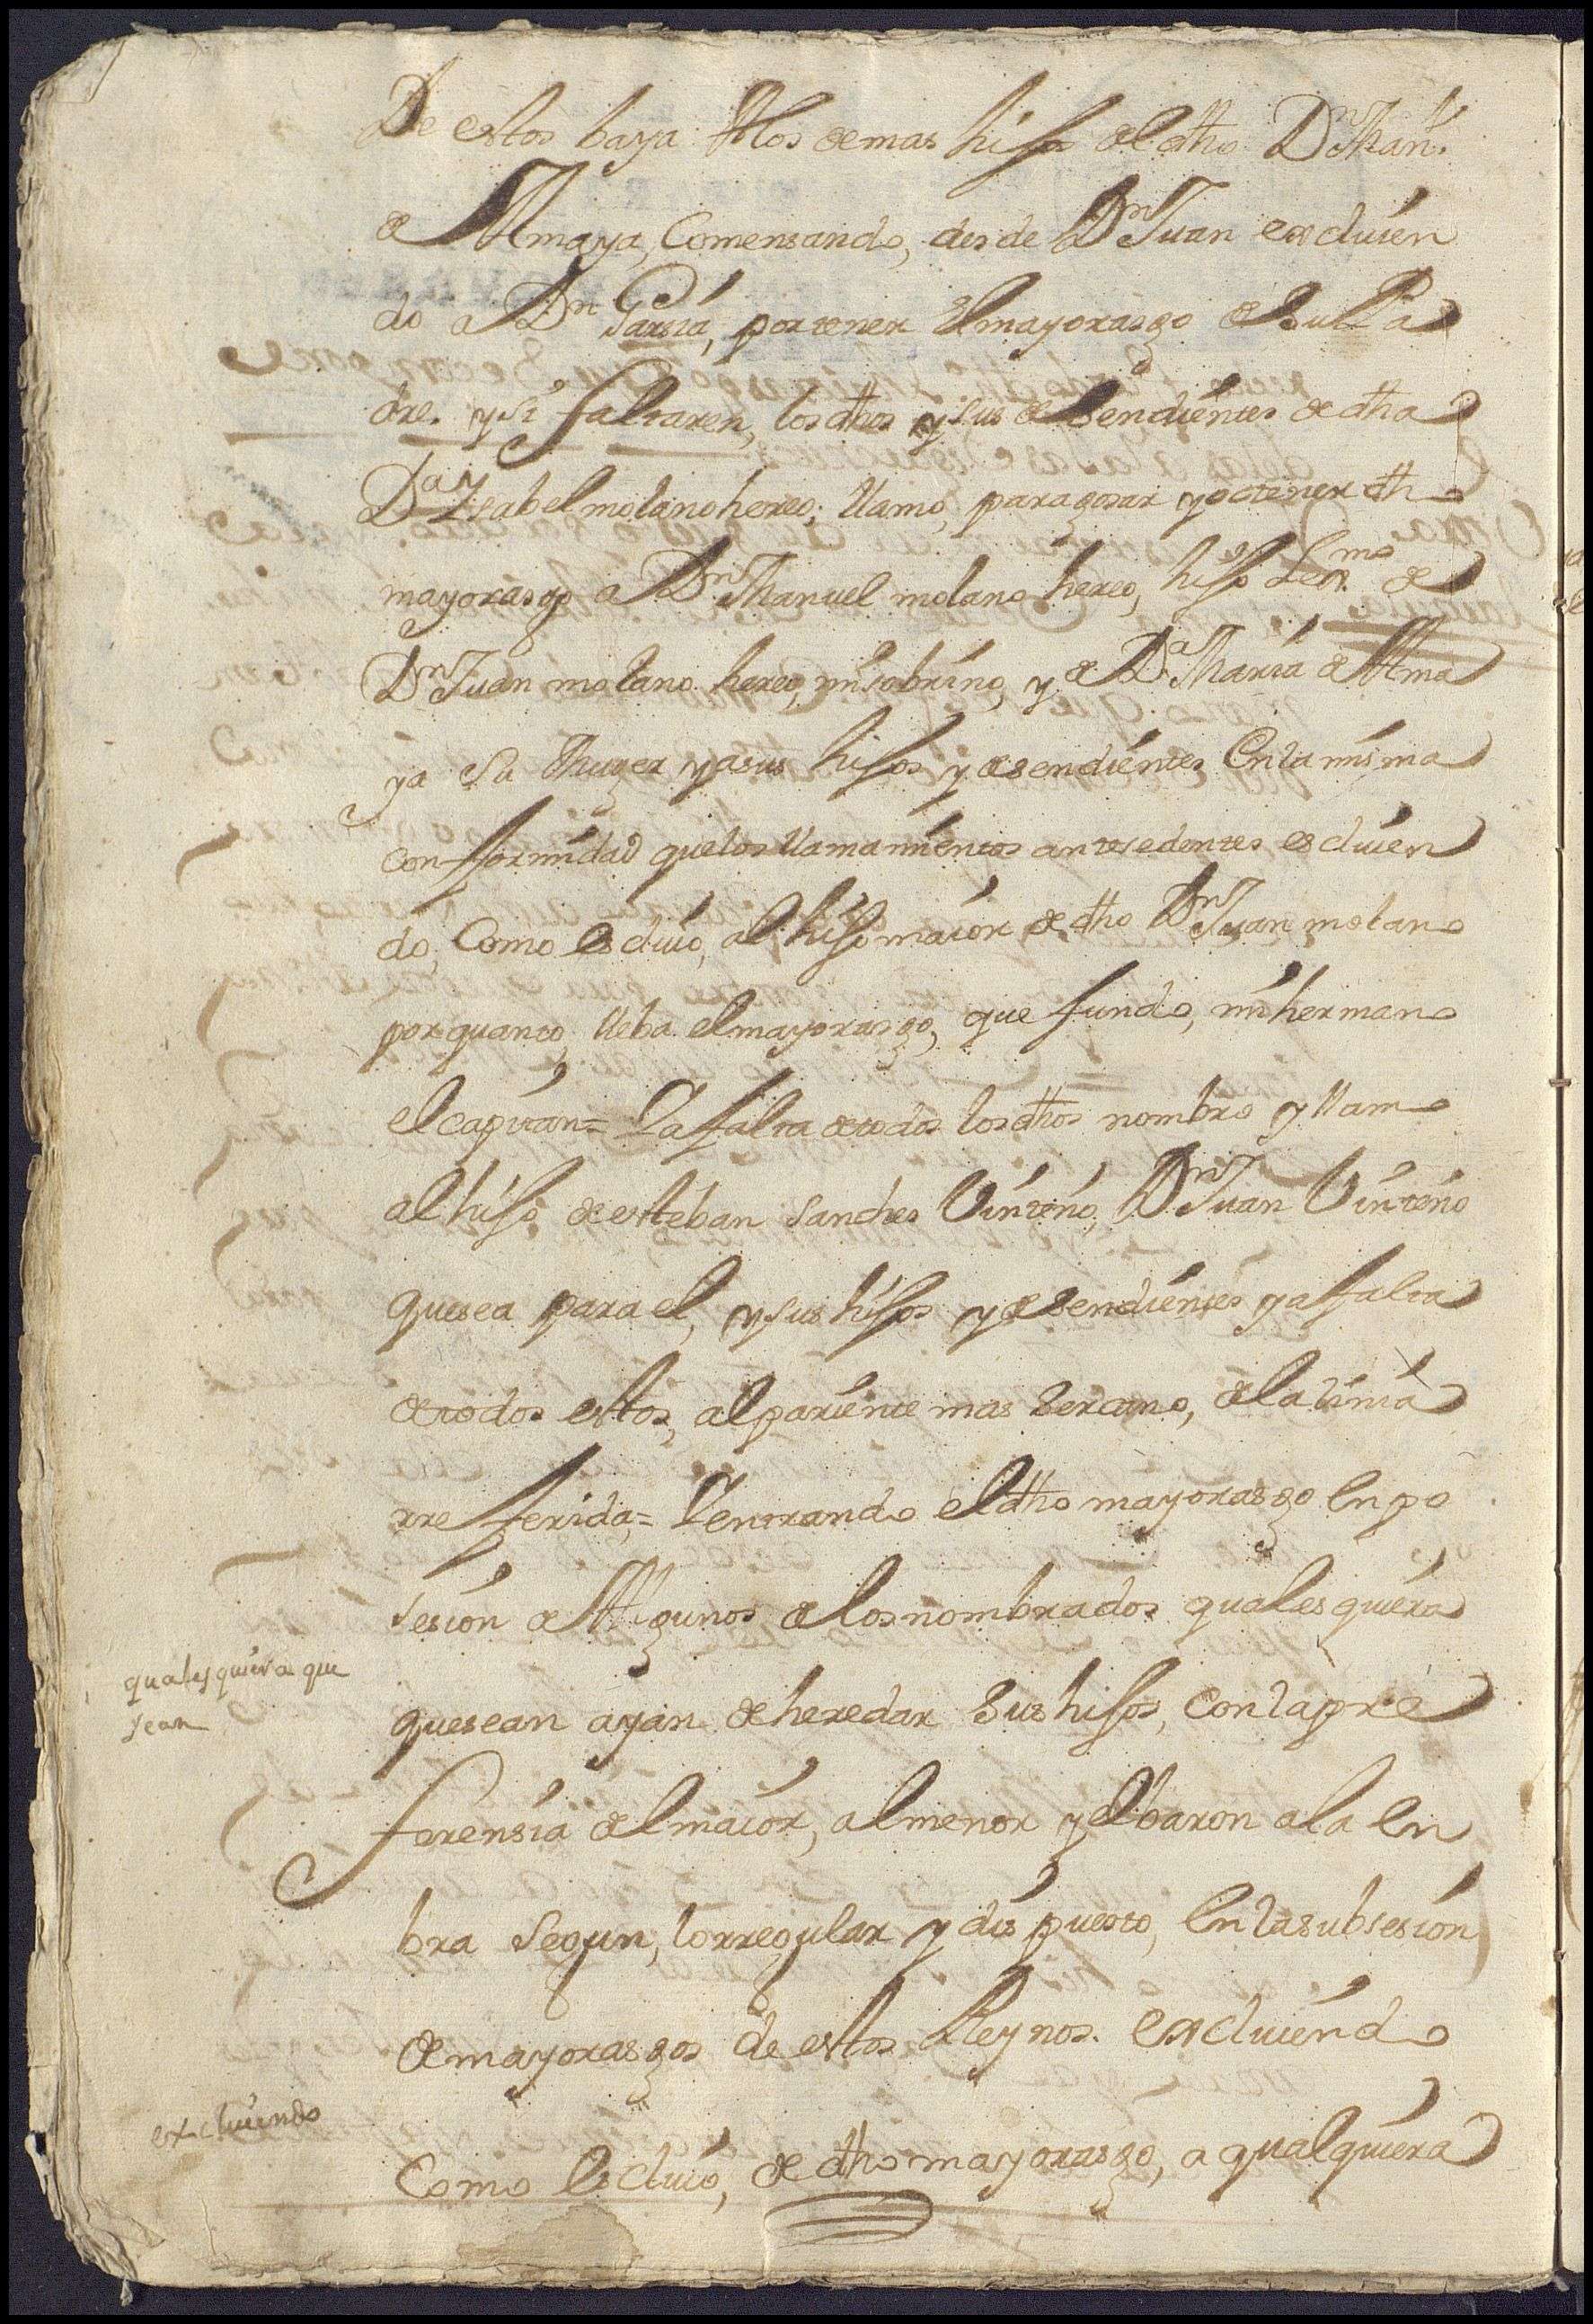 De estos baya Alos demas hijos del dho Dn Man.
de Amaya, Comensando, desde Dn Juan excluien
do a Dn Garsia, por tener el mayorasgo de su Pa
dre. y si faltaren, los dhos y sus desendientes de dha
Da Ysabel molano hereo; llamo, para gosar y obtener dho
mayorasgo a Dn Manuel molano hereo, hijo Lexmo de
Dn Juan molano hereo, mi sobrino, y de Da Maria de Ama
ya su Muger y a sus hijos y desendientes En la misma
conformidad que los llamamientos antesedentes escluien
do, Como escluio, al hijo maior de dho Dn Juan molano
por quanto, lleba el mayorasgo, que fundo, mi hermano
el capitan = Y a falta de todos los dhos nombro y llamo
al hijo de esteban sanches Vinteño, Dn Juan Vinteño
que sea para el, y sus hijos y desendientes y a falta
de todos estos, al pariente mas sercano, de la linia
rreferida, = Y entrando el dho mayorasgo En po
sesion de Algunos de los nombrados quales quiera
que sean ayan de heredar sus hijos, con la pre
ferensia del maior, al menor y el baron a la En
bra segun, lo rregular y dis puesto, En la subsesion
de mayorasgos de estos Reynos. excluiendo
Como Escluio, de dho mayorasgo, a qualquiera
qualesquiera que
sean
excluiendo